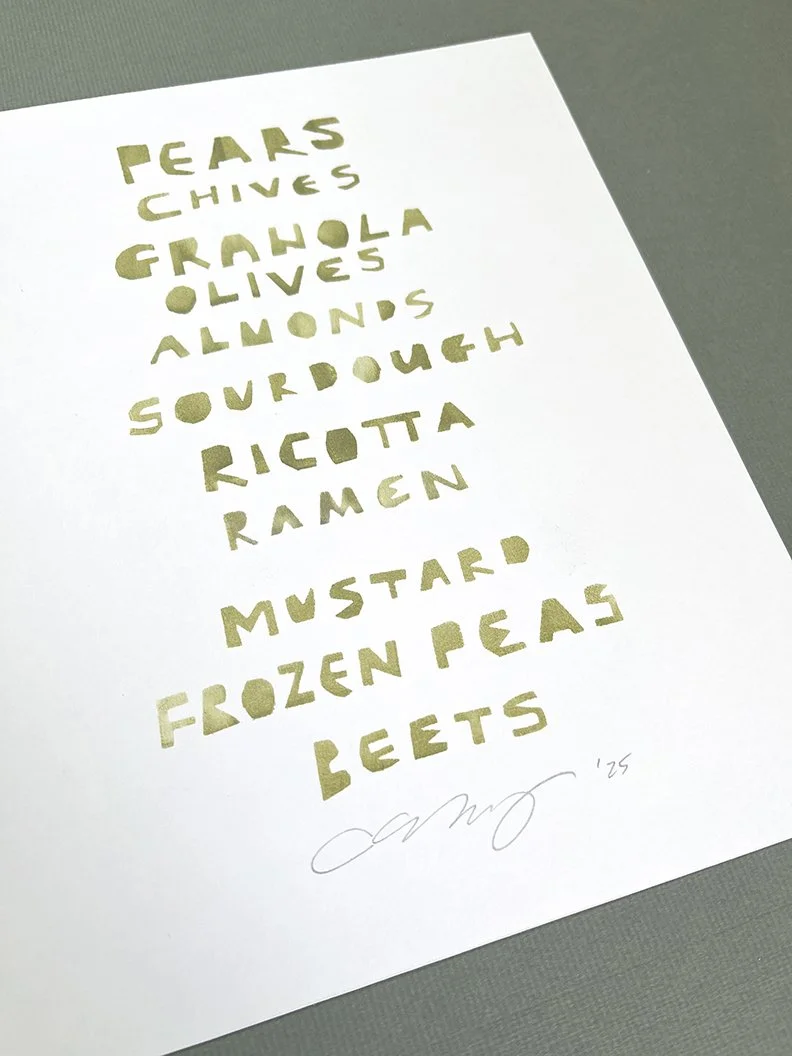 PEARS
CHIVES
GRANOLA
OLIVES
ALMONDS
SOURDOUGH
RICOTTA
RAMEN
MUSTARD
FROZEN PEAS
BEETS
'25